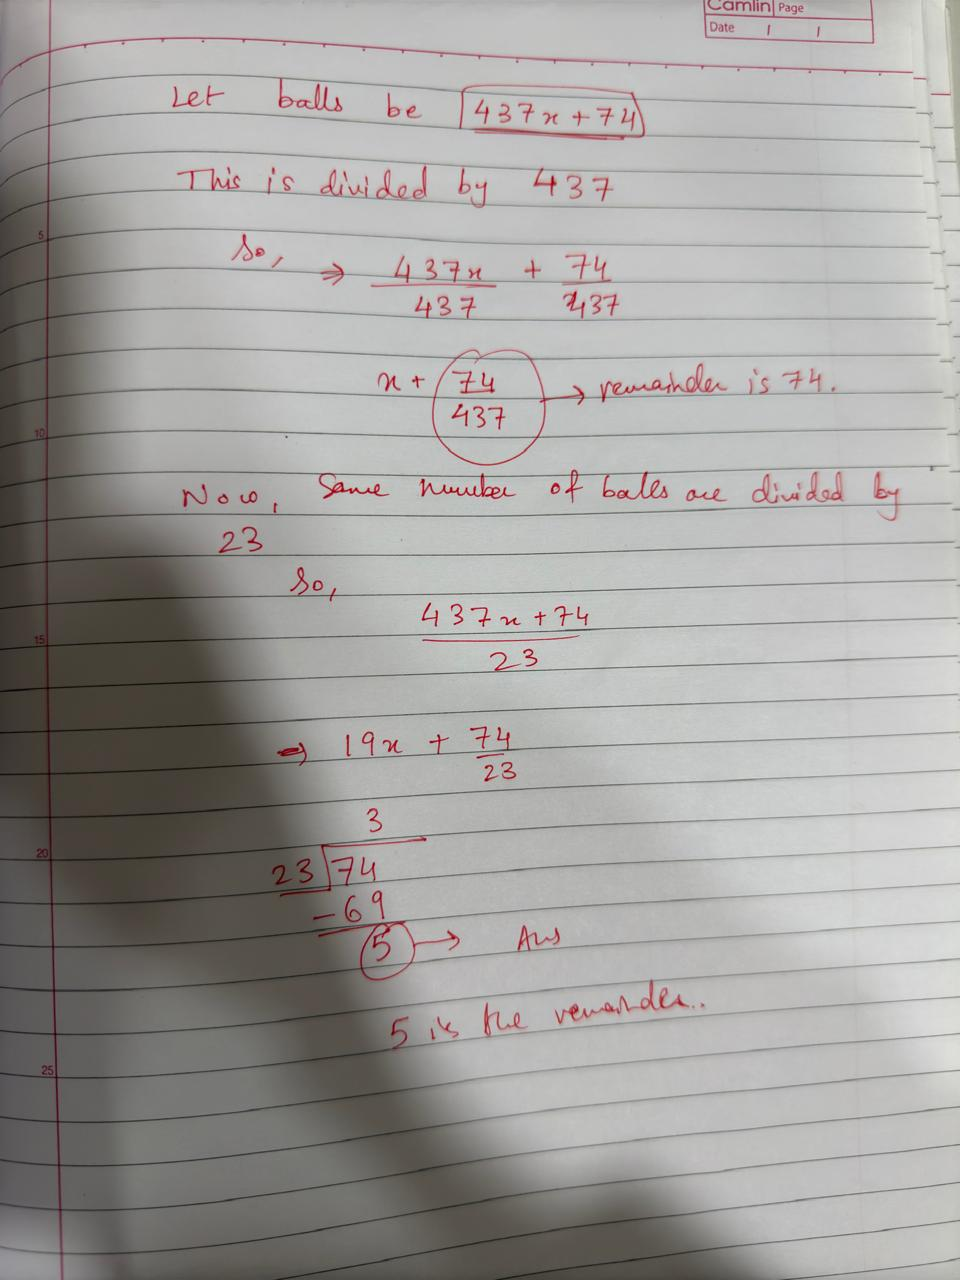 Camlin Page
Date / /
Let balls be 437x + 74
This is divided by 437
5
So, ⇒ 437x/437 + 74/437
x + 74/437 → remainder is 74.
10
Now, Same number of balls are divided by
23
So,
437x + 74
15
23
⇒ 19x + 74/23
3
20
23 74
- 69
5 → Ans
5 is the remainder..
25